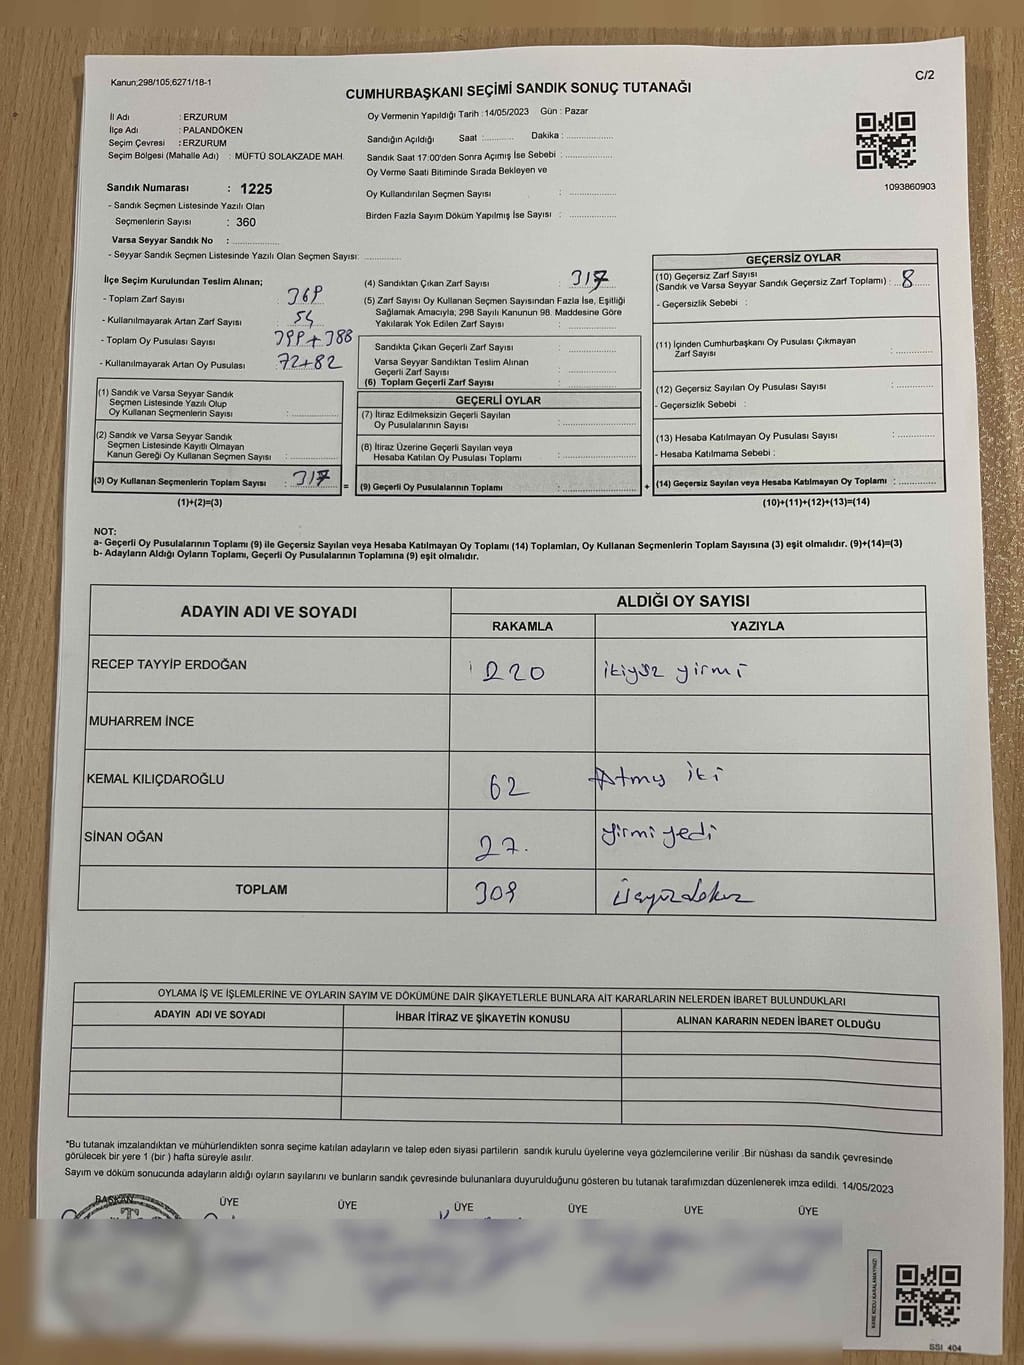 Kanun;298/105;6271/18-1
C/2
CUMHURBAŞKANI SEÇİMİ SANDIK SONUÇ TUTANAĞI
İl Adı : ERZURUM
İlçe Adı : PALANDÖKEN
Seçim Çevresi : ERZURUM
Seçim Bölgesi (Mahalle Adı) : MÜFTÜ SOLAKZADE MAH.
Sandık Numarası : 1225
- Sandık Seçmen Listesinde Yazılı Olan
Seçmenlerin Sayısı : 360
Varsa Seyyar Sandık No : ..............
- Seyyar Sandık Seçmen Listesinde Yazılı Olan Seçmen Sayısı: ..............
Oy Vermenin Yapıldığı Tarih : 14/05/2023 Gün : Pazar
Sandığın Açıldığı Saat : .......... Dakika : ..............
Sandık Saat 17:00'den Sonra Açımış İse Sebebi : ..............
Oy Verme Saati Bitiminde Sırada Bekleyen ve
Oy Kullandırılan Seçmen Sayısı : ..............
Birden Fazla Sayım Döküm Yapılmış İse Sayısı : ..............
1093860903
İlçe Seçim Kurulundan Teslim Alınan;
- Toplam Zarf Sayısı : 369
- Kullanılmayarak Artan Zarf Sayısı :
- Toplam Oy Pusulası Sayısı : 399+388
- Kullanılmayarak Artan Oy Pusulası : 72+82
(1) Sandık ve Varsa Seyyar Sandık
Seçmen Listesinde Yazılı Olup
Oy Kullanan Seçmenlerin Sayısı : ..............
(2) Sandık ve Varsa Seyyar Sandık
Seçmen Listesinde Kayıtlı Olmayan
Kanun Gereği Oy Kullanan Seçmen Sayısı : ..............
(3) Oy Kullanan Seçmenlerin Toplam Sayısı : 317
(1)+(2)=(3)
(4) Sandıktan Çıkan Zarf Sayısı : 317
(5) Zarf Sayısı Oy Kullanan Seçmen Sayısından Fazla İse, Eşitliği
Sağlamak Amacıyla; 298 Sayılı Kanunun 98. Maddesine Göre
Yakılarak Yok Edilen Zarf Sayısı : ..............
Sandıkta Çıkan Geçerli Zarf Sayısı : ..............
Varsa Seyyar Sandıktan Teslim Alınan
Geçerli Zarf Sayısı : ..............
(6) Toplam Geçerli Zarf Sayısı : ..............
GEÇERLİ OYLAR
(7) İtiraz Edilmeksizin Geçerli Sayılan
Oy Pusulalarının Sayısı : ..............
(8) İtiraz Üzerine Geçerli Sayılan veya
Hesaba Katılan Oy Pusulası Toplamı : ..............
= (9) Geçerli Oy Pusulalarının Toplamı : ..............
GEÇERSİZ OYLAR
(10) Geçersiz Zarf Sayısı
(Sandık ve Varsa Seyyar Sandık Geçersiz Zarf Toplamı) : 8
- Geçersizlik Sebebi :
(11) İçinden Cumhurbaşkanı Oy Pusulası Çıkmayan
Zarf Sayısı : ..............
(12) Geçersiz Sayılan Oy Pusulası Sayısı : ..............
- Geçersizlik Sebebi :
(13) Hesaba Katılmayan Oy Pusulası Sayısı : ..............
- Hesaba Katılmama Sebebi :
+ (14) Geçersiz Sayılan veya Hesaba Katılmayan Oy Toplamı : ..............
(10)+(11)+(12)+(13)=(14)
NOT:
a- Geçerli Oy Pusulalarının Toplamı (9) ile Geçersiz Sayılan veya Hesaba Katılmayan Oy Toplamı (14) Toplamları, Oy Kullanan Seçmenlerin Toplam Sayısına (3) eşit olmalıdır. (9)+(14)=(3)
b- Adayların Aldığı Oyların Toplamı, Geçerli Oy Pusulalarının Toplamına (9) eşit olmalıdır.
ADAYIN ADI VE SOYADI ALDIĞI OY SAYISI
RAKAMLA YAZIYLA
RECEP TAYYİP ERDOĞAN 220 ikiyüz yirmi
MUHARREM İNCE
KEMAL KILIÇDAROĞLU 62 Atmış iki
SİNAN OĞAN 27. yirmi yedi
TOPLAM 309 üçyüzdokuz
OYLAMA İŞ VE İŞLEMLERİNE VE OYLARIN SAYIM VE DÖKÜMÜNE DAİR ŞİKAYETLERLE BUNLARA AİT KARARLARIN NELERDEN İBARET BULUNDUKLARI
ADAYIN ADI VE SOYADI İHBAR İTİRAZ VE ŞİKAYETİN KONUSU ALINAN KARARIN NEDEN İBARET OLDUĞU
*Bu tutanak imzalandıktan ve mühürlendikten sonra seçime katılan adayların ve talep eden siyasi partilerin sandık kurulu üyelerine veya gözlemcilerine verilir .Bir nüshası da sandık çevresinde
görülecek bir yere 1 (bir ) hafta süreyle asılır.
Sayım ve döküm sonucunda adayların aldığı oyların sayılarını ve bunların sandık çevresinde bulunanlara duyurulduğunu gösteren bu tutanak tarafımızdan düzenlenerek imza edildi. 14/05/2023
BAŞKAN ÜYE ÜYE ÜYE ÜYE ÜYE ÜYE
KARE KODU KARALAMAYINIZ!
SSI 404